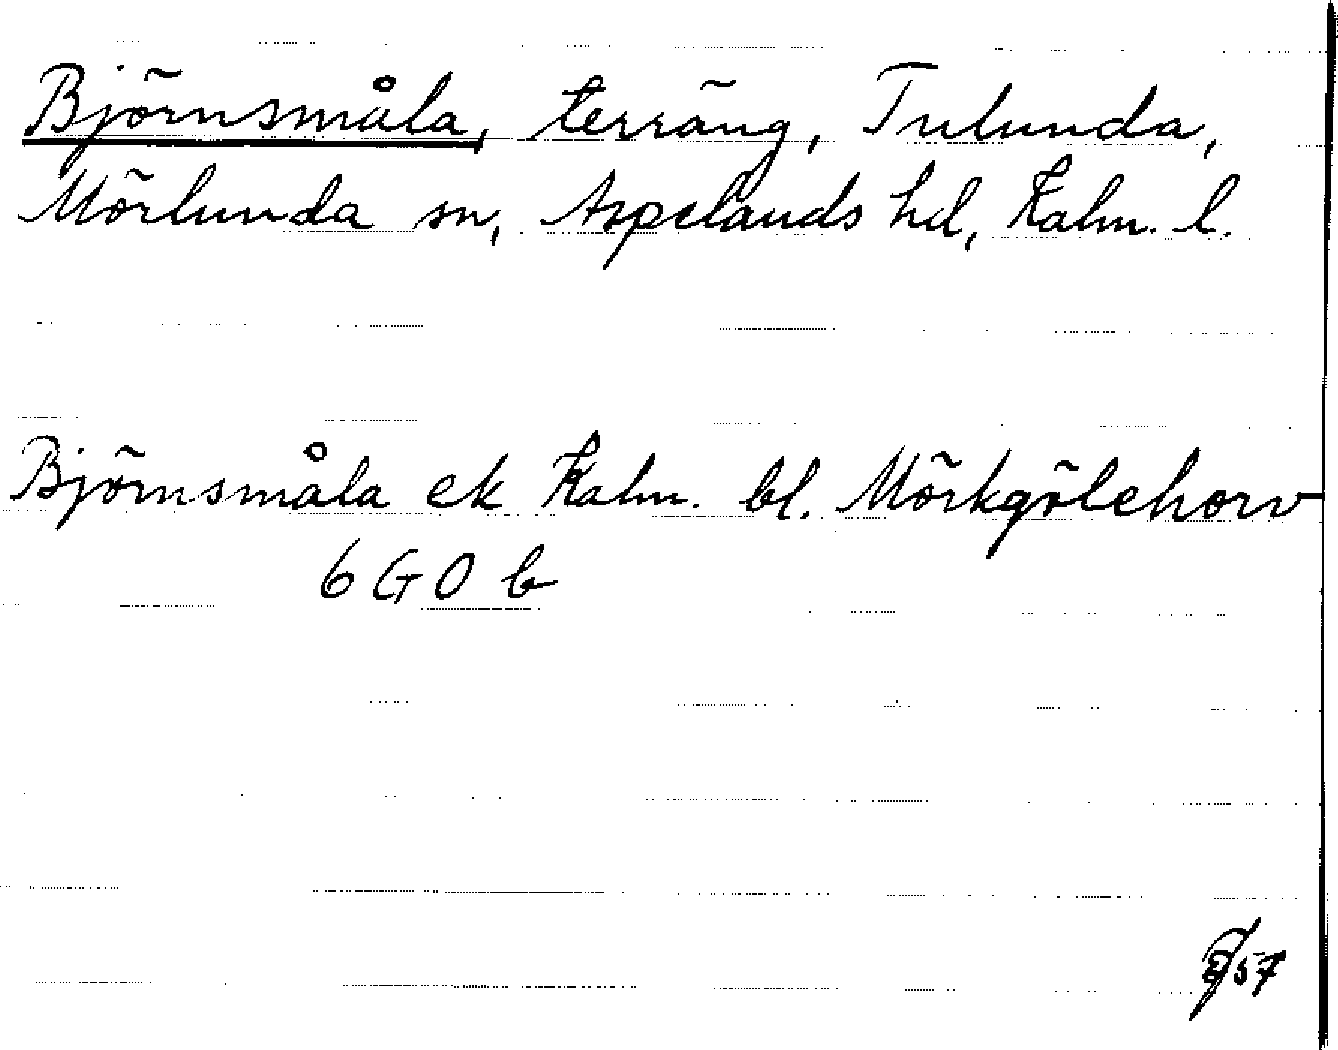 Björnsmåla, terräng, Tulunda,
Mörlunda sn, Aspelands hd, Kalm. l.
Björnsmåla ek Kalm. bl. Mörkgölehorv
6 G O b
57